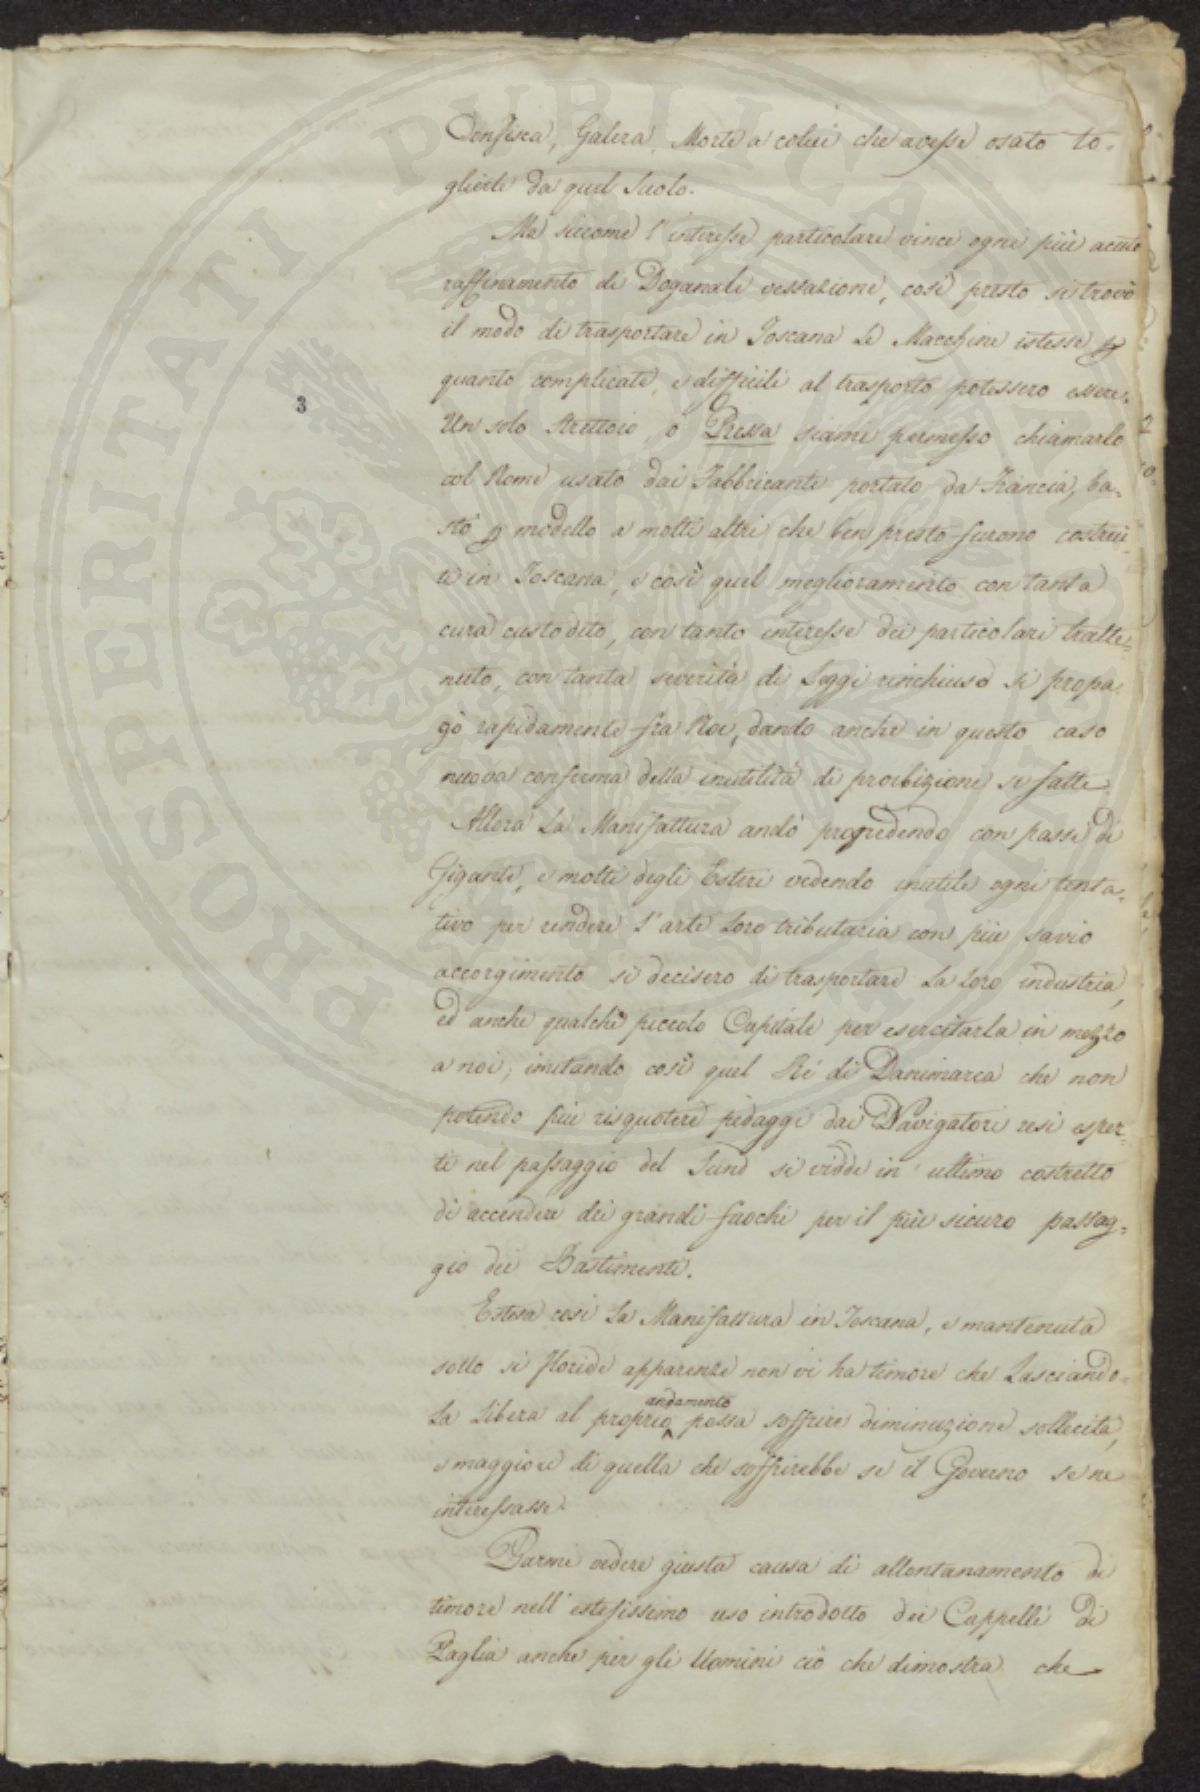 Confisca, Galera, Morte a colui che avesse osato to-
glierli da quel suolo.
Ma siccome l'interesse particolare vince ogni più acuto
raffinamento di Doganali vessazioni, così presto si trovò
il modo di trasportare in Toscana le Macchine istesse p
quanto complicate, e difficili al trasporto potessero essere.
Un solo Strettoio, o Pressa siami permesso chiamarlo
col Nome usato dai Fabbricanti portato da Francia, ba-
stò p modello a molti altri che ben presto furono costrui-
ti in Toscana, e così quel miglioramento con tanta
cura custodito, con tanto interesse dei particolari tratte-
nuto, con tanta severità di Leggi rinchiuso si propa
gò rapidamente fra Noi, dando anche in questo caso
nuova conferma della inutilità di proibizioni sì fatte.
Allora la Manifattura andò progredendo con passi di
Gigante, e molti degli Esteri vedendo inutile ogni tenta-
tivo per rendere l'arte loro tributaria con più savio
accorgimento si decisero di trasportare la loro industria,
ed anche qualche piccolo Capitale per esercitarla in mezzo
a noi; imitando così quel Rè di Danimarca che non
potendo più risquotere pedaggi dai Navigatori resi esper-
ti nel passaggio del Sund si vidde in ultimo costretto
di accendere dei grandi fuochi per il più sicuro passag-
gio dei Bastimenti.
Estesa così la Manifattura in Toscana, e mantenuta
sotto sì floride apparenze non vi ha timore che lasciando-
la libera al proprio andamento possa soffrire diminuzione sollecita,
e maggiore di quella che soffrirebbe se il Governo se ne
interessasse.
Parmi vedere giusta causa di allontanamento di
timore nell'estesissimo uso introdotto dei Cappelli di
Paglia anche per gli Uomini ciò che dimostra che
3
PROSPERITATI PUBLICAE